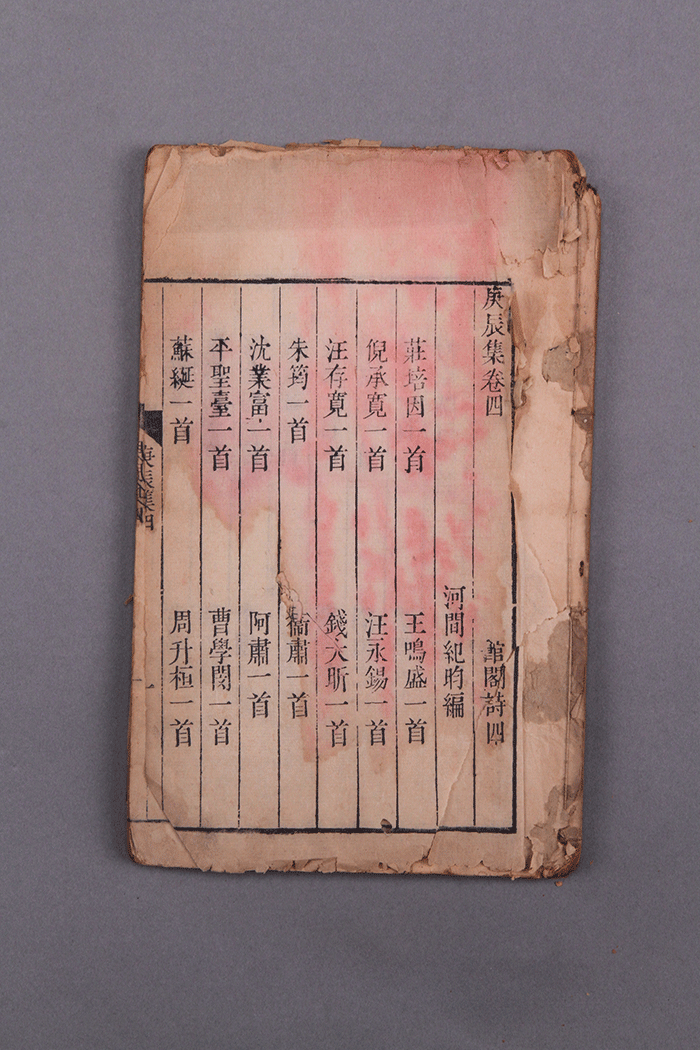 庚辰集卷四 館閣詩四
河間紀昀編
莊培因一首 王鳴盛一首
倪承寬一首 汪永錫一首
汪存寬一首 錢大昕一首
朱筠一首 衛肅一首
沈業富一首 阿肅一首
平聖臺一首 曹學閔一首
蘇綎一首 周升桓一首
庚辰集四 一